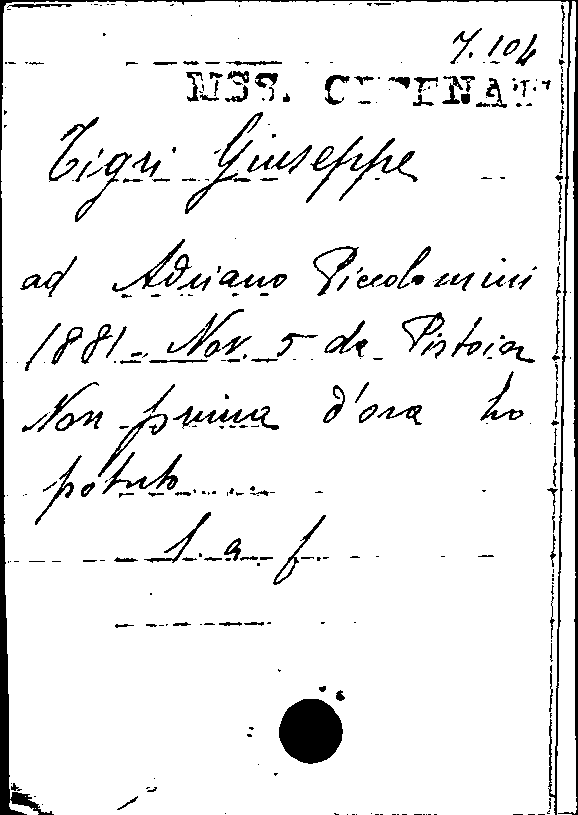 7.104
MSS. CEPENAT
Tigri Giuseppe
ad Adriano Piccolomini
1881. Nov. 5 da Pistoia
Non prima d'ora ho
potuto.....
l. a. f.